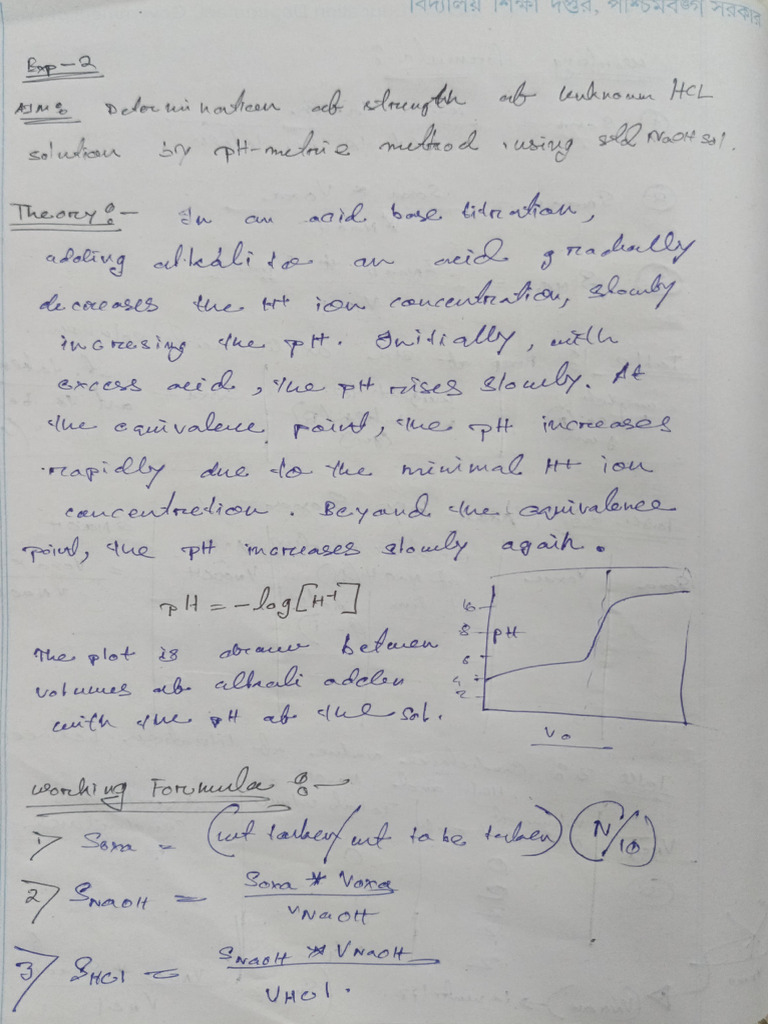 বিদ্যালয় শিক্ষা দপ্তর, পশ্চিমবঙ্গ সরকার
Exp-2
AIM: Determination of strength of unknown HCL
solution by pH-metric method using std NaOH sol.
Theory:- In an acid base titration,
adding alkali to an acid gradually
decreases the H+ ion concentration, slowly
incresing the pH. Initially, with
excess acid, the pH rises slowly. At
the equivalence point, the pH increases
rapidly due to the minimal H+ ion
concentration. Beyond the equivalence
point, the pH increases slowly again.
pH = -log[H+]
The plot is drawn between
volumes of alkali added
with the pH of the sol.
10
8 pH
6
4
2
Working Formula :-
1) Soxa = (wt taken/wt to be taken) (N/10)
2) SNaOH = Soxa * Voxa
VNaOH
3) SHCl = SNaOH * VNaOH
VHCl.